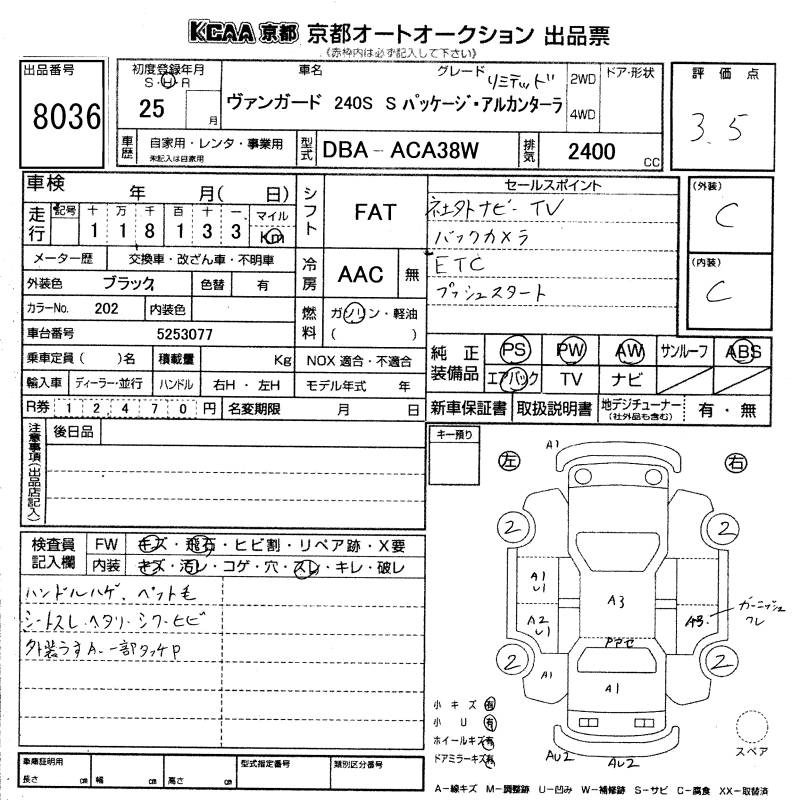 KCAA 京都 京都オートオークション 出品票
《赤枠内は必ず記入して下さい》
出品番号
8036
初度登録年月
S・H・R
25 月
車名
グレード リミテッド
ヴァンガード 240S S パッケージ・アルカンターラ
2WD
4WD
ドア・形状
評価点
3.5
車歴
自家用・レンタ・事業用
未記入は自家用
型式
DBA-ACA38W
排気
2400 CC
車検 年 月( 日)
走行
記号 十 万 千 百 十 一
1 1 8 1 3 3
マイル
Km
メーター歴 交換車・改ざん車・不明車
外装色 ブラック 色替 有
カラーNo. 202 内装色
車台番号 5253077
乗車定員( )名 積載量 Kg
輸入車 ディーラー・並行 ハンドル 右H・左H
R券 1 2 4 7 0 円 名変期限 月 日
シフト FAT
冷房 AAC 無
燃料 ガソリン・軽油
( )
NOX 適合・不適合
モデル年式 年
セールスポイント
社外ナビ・TV
バックカメラ
ETC
プッシュスタート
(外装)
C
(内装)
C
純正装備品
PS PW AW サンルーフ ABS
エアバック TV ナビ
新車保証書 取扱説明書 地デジチューナー
(社外品も含む)
有・無
注意事項(出品店記入)
後日品
キー預り
左 右
検査員記入欄
FW キズ・飛石・ヒビ割・リペア跡・X要
内装 キズ・汚レ・コゲ・穴・スレ・キレ・破レ
ハンドルハゲ、ペット毛
シートスレ・ヘタリ・シワ・ヒビ
外装うすA、一部タッチP
A1
2 2
A1
U1
A2
U1
A3
A3
ガーニッシュ
ワレ
2 2
A1
A1
AU2 AU2
小キズ 有
小U 有
ホイールキズ 有
ドアミラーキズ 有
スペア
車庫証明用
長さ cm 幅 cm 高さ cm
型式指定番号
類別区分番号
A-線キズ M-調整跡 U-凹み W-補修跡 S-サビ C-腐食 XX-取替済